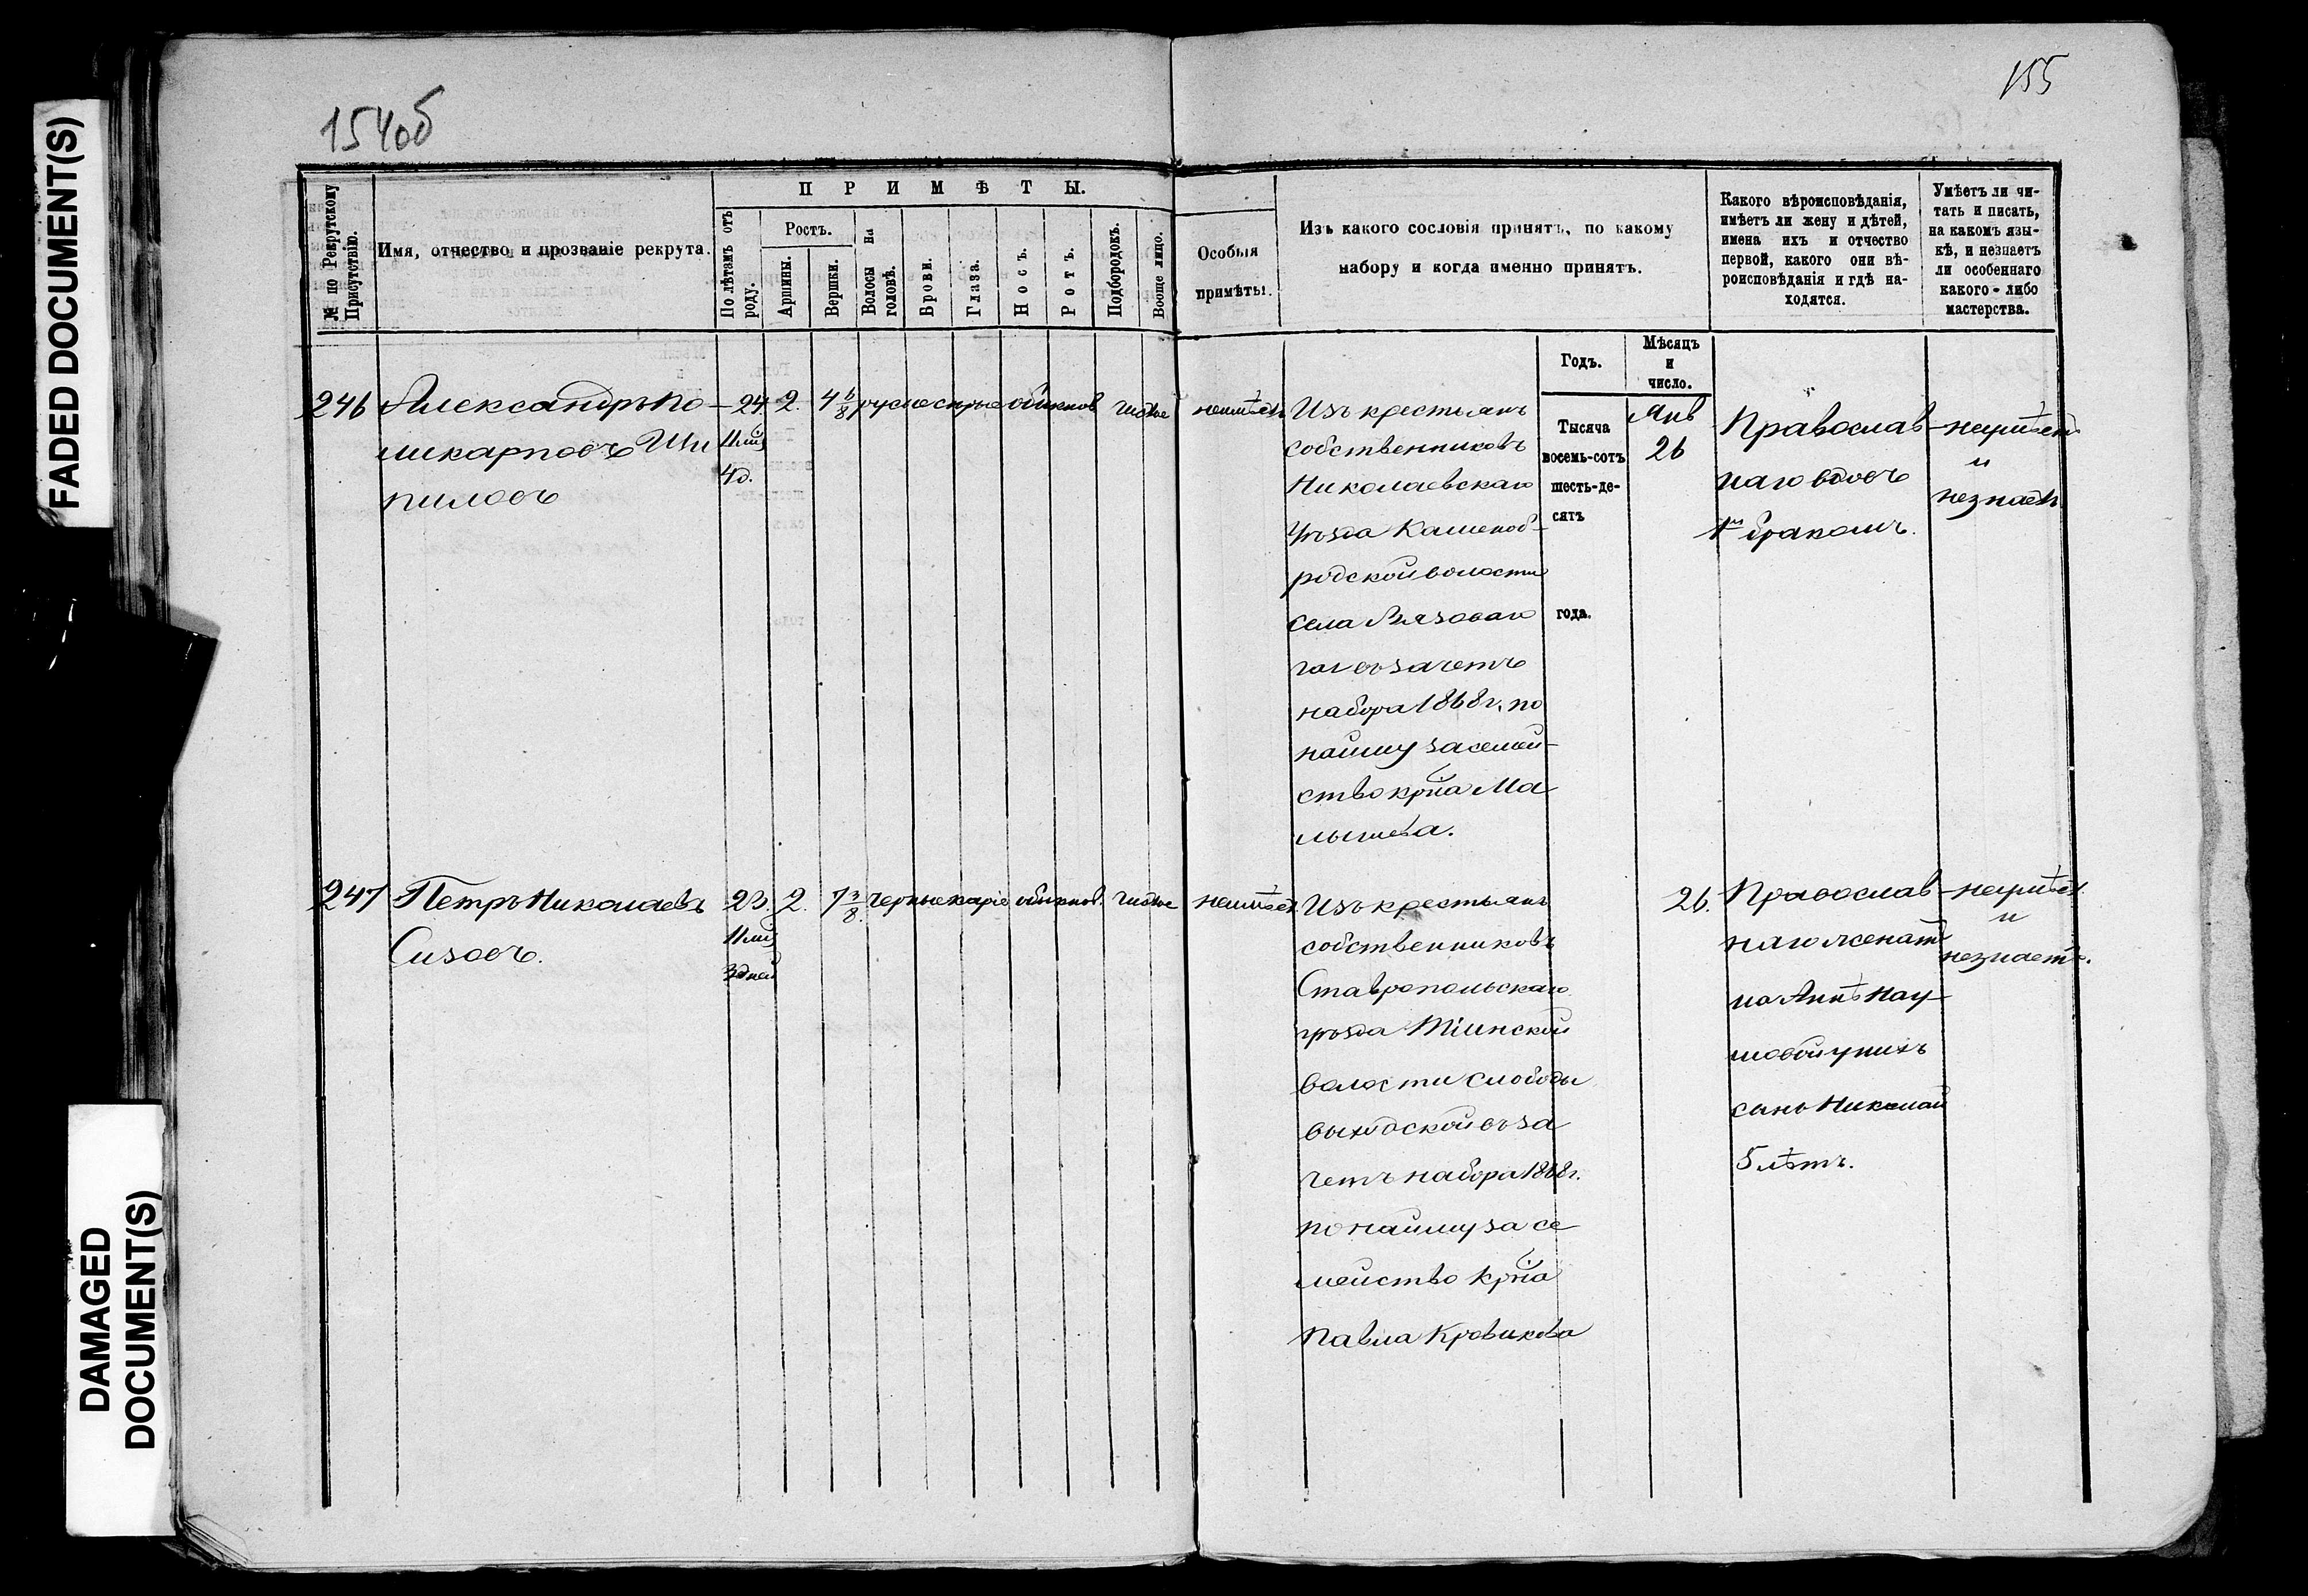 FADED DOCUMENT(S)
DAMAGED
DOCUMENT(S)
154об
155
№ по Рекрутскому
Присутствію.
Имя, отчество и прозваніе рекрута.
ПРИМѢТЫ.
По лѣтамъ отъ
роду.
Ростъ.
Аршины.
Вершки.
Волосы на
головѣ.
Брови.
Глаза.
Носъ.
Ротъ.
Подбородокъ.
Вообще лицо.
Особыя
примѣты.
Изъ какого сословія принятъ, по какому
набору и когда именно принятъ.
Какого вѣроисповѣданія,
имѣетъ ли жену и дѣтей,
имена ихъ и отчество
первой, какого они вѣ-
роисповѣданія и гдѣ на-
ходятся.
Умѣетъ ли чи-
тать и писать,
на какомъ язы-
кѣ, и незнаетъ
ли особеннаго
какого-либо
мастерства.
Годъ.
Мѣсяцъ
и
число.
Тысяча
восемь-сотъ
шесть-де-
сятъ
года.
246 Александръ По-
ликарповъ Ши
пиловъ
24
11 мц
4 д.
2. 4 6/8 русые сѣрые обыкнов чистое неимѣетъ
Изъ крестьянъ
собственниковъ
Николаевскаго
Уѣзда Каменоб-
родской волости
села Вязоваго
гаи въ зачетъ
набора 1868 г. по
найму за семей-
ство кр̃на Ма
лышева.
Янв
26
Православ-
наго вдовъ
1м бракомъ.
неумѣетъ
и
незнаетъ
247 Петръ Николаевъ
Сизовъ.
23.
11 мц
3 дней
2. 7 3/8 черные каріе обыкнов. чистое неимѣетъ.
Изъ крестьянъ
собственниковъ
Ставропольскаго
уѣзда Тіинской
волости слободы
выходской въ за
четъ набора 1868 г.
по найму за се
мейство кр̃на
Павла Кровикова
26.
Православ-
наго женатъ
на Аннѣ Нау-
мовой у нихъ
сынъ Николай
5 лѣтъ.
неумѣетъ
и
незнаетъ.